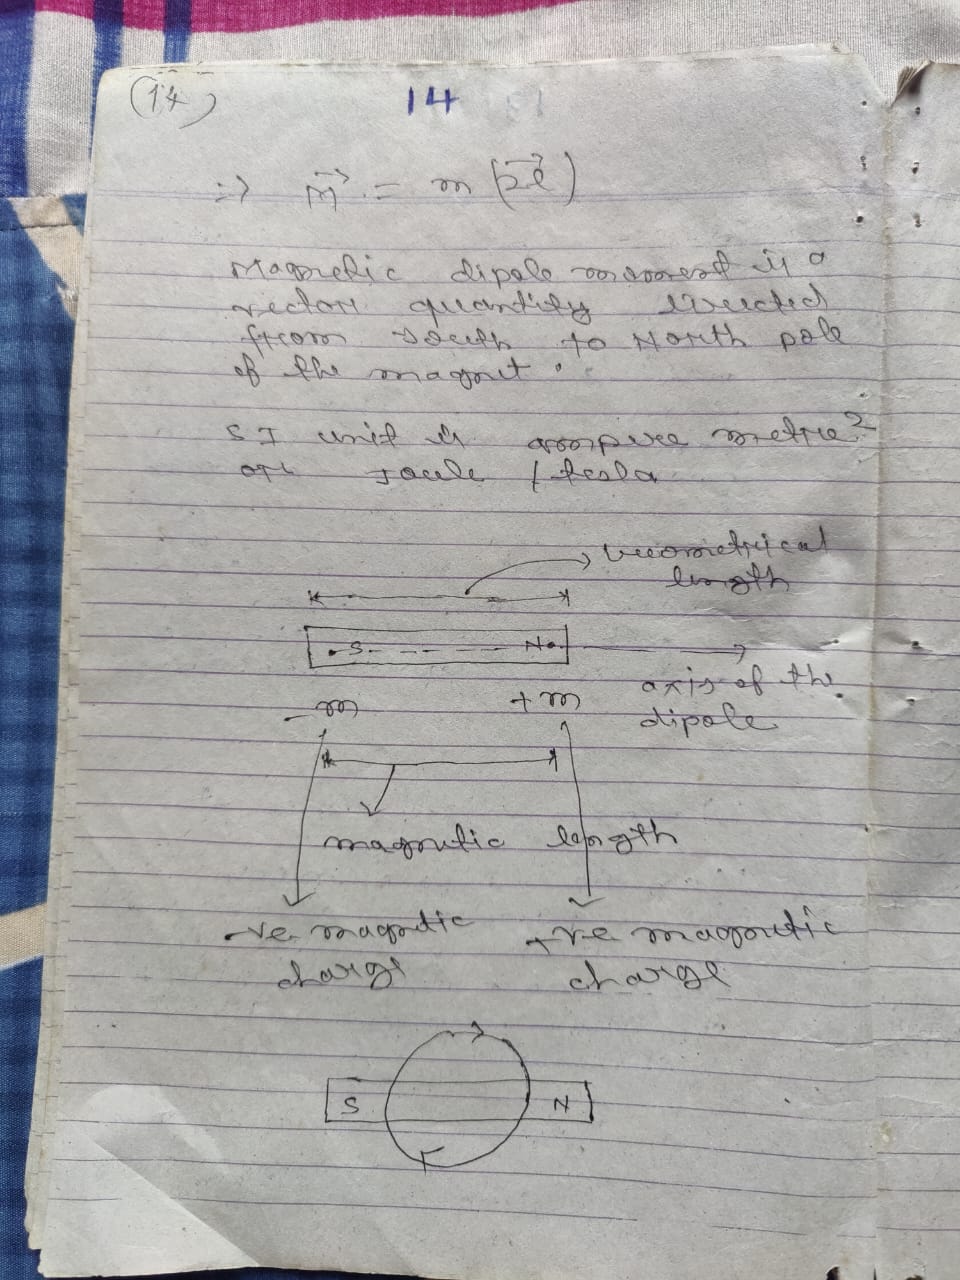 14
14
⇒ M⃗ = m (2l⃗)
Magnetic dipole moment is a
vector quantity directed
from south to North pole
of the magnet.
SI unit is ampere metre²
or Joule / tesla
Geometrical
length
S N
- m + m
axis of the
dipole
magnetic length
-ve magnetic
charge
+ve magnetic
charge
S N